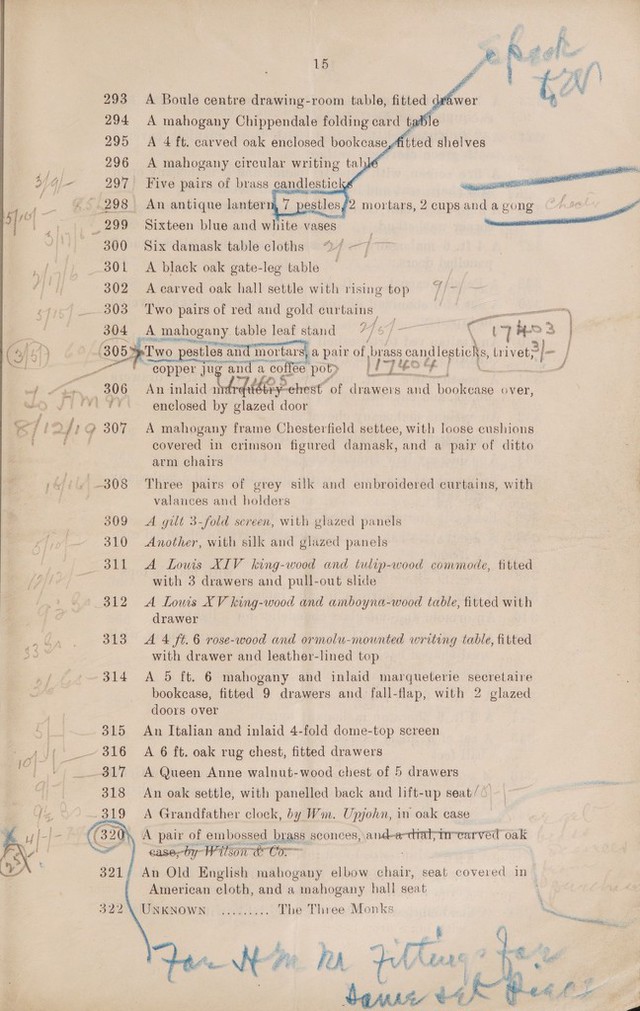 15
293 A Boule centre drawing-room table, fitted drawer
294 A mahogany Chippendale folding card table
295 A 4 ft. carved oak enclosed bookcase, fitted shelves
296 A mahogany circular writing table
3/9/- 297 Five pairs of brass candlesticks
298 An antique lantern, 7 pestles, 2 mortars, 2 cups and a gong
299 Sixteen blue and white vases
300 Six damask table cloths
301 A black oak gate-leg table
302 A carved oak hall settle with rising top 9/-/-
303 Two pairs of red and gold curtains
304 A mahogany table leaf stand
17403
305 Two pestles and mortars, a pair of brass candlesticks, trivet, 3/-
copper jug and a coffee pot 17404
17405
306 An inlaid marquetry chest of drawers and bookcase over,
To HMM enclosed by glazed door
8/12/19 307 A mahogany frame Chesterfield settee, with loose cushions
covered in crimson figured damask, and a pair of ditto
arm chairs
308 Three pairs of grey silk and embroidered curtains, with
valances and holders
309 A gilt 3-fold screen, with glazed panels
310 Another, with silk and glazed panels
311 A Louis XIV king-wood and tulip-wood commode, fitted
with 3 drawers and pull-out slide
312 A Louis XV king-wood and amboyna-wood table, fitted with
drawer
313 A 4 ft. 6 rose-wood and ormolu-mounted writing table, fitted
with drawer and leather-lined top
314 A 5 ft. 6 mahogany and inlaid marqueterie secretaire
bookcase, fitted 9 drawers and fall-flap, with 2 glazed
doors over
315 An Italian and inlaid 4-fold dome-top screen
316 A 6 ft. oak rug chest, fitted drawers
317 A Queen Anne walnut-wood chest of 5 drawers
318 An oak settle, with panelled back and lift-up seat
319 A Grandfather clock, by Wm. Upjohn, in oak case
320 A pair of embossed brass sconces, and a dial, in carved oak
case, by Wilson & Co.
321 An Old English mahogany elbow chair, seat covered in
American cloth, and a mahogany hall seat
322 UNKNOWN ......... The Three Monks
For H M M Fittings for
same set